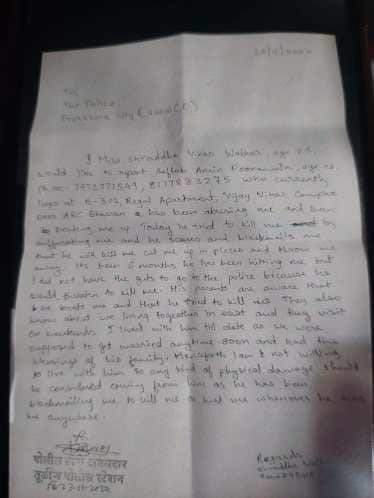 To,
The Police,
I Miss Shraddha Vikas Walkar, age 25,
would like to report Aaftab Amin Poonawala, age 26
who currently
lives at B-302, Regal Apartment, Vijay Vihar Complex
has been abusing me and been
beating me up. Today he tried to kill me by
suffocating me and he scares and blackmails me
that he will kill me cut me up in pieces and throw me
away. It's been 6 months he has been hitting me but
I did not have the guts to go to the police because he
would threaten to kill me. His parents are aware that
he beats me and that he tried to kill me. They also
know about we living together and they visit
on weekends. I lived with him till date as we were
supposed to get married anytime soon and had the
blessings of his family. Henceforth I am not willing
to live with him so any kind of physical damage should
be considered coming from him as he has been
blackmailing me to kill me or hurt me whenever he sees
me anywhere.
Regards
पोलीस ठाणे अंमलदार
तुळींज पोलीस स्टेशन